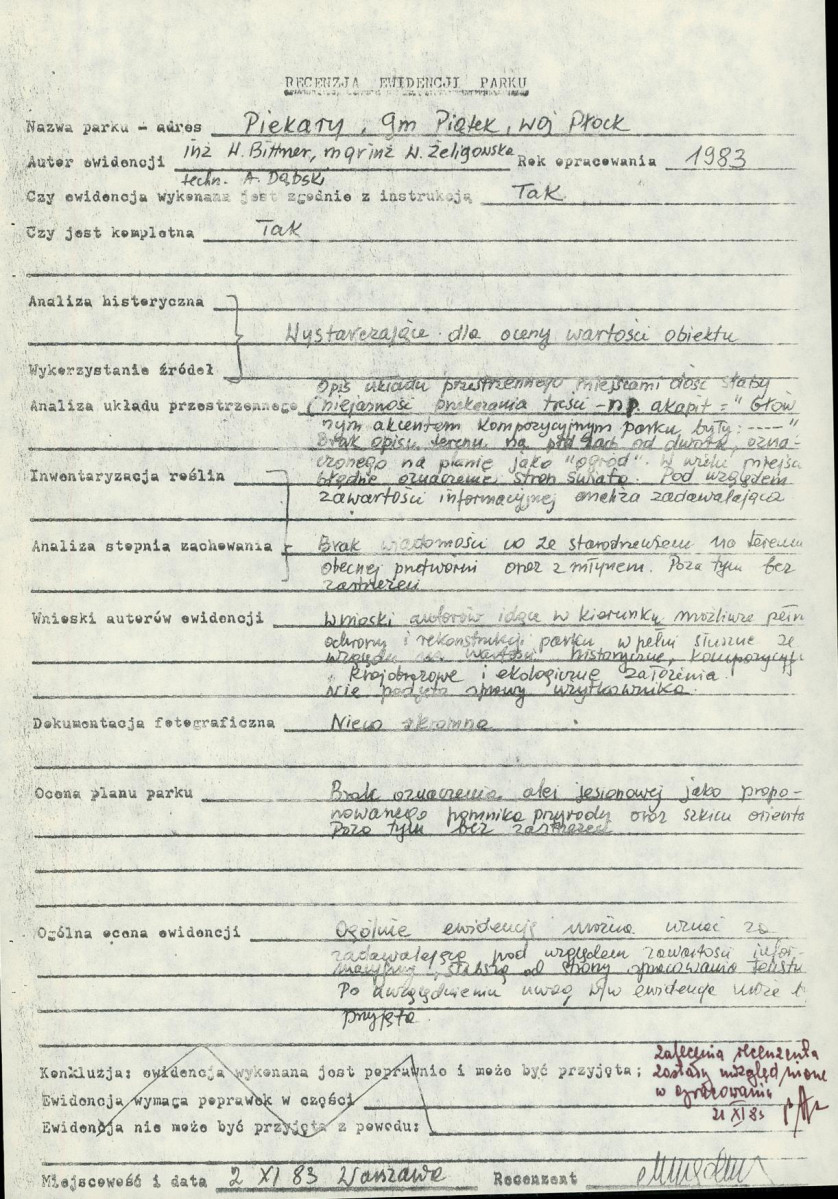 RECENZJA EWIDENCJI PARKU
Nazwa parku - adres Piekary, gm Piątek, woj Płock
Autor ewidencji inż W. Bittner, mgr inż W. Żeligowska Rok opracowania 1983
techn. A. Dąbski
Czy ewidencja wykonana jest zgodnie z instrukcją Tak
Czy jest kompletna Tak
Analiza historyczna
Wystarczające dla oceny wartości obiektu
Wykorzystanie źródeł
Opis układu przestrzennego miejscami dość słaby
Analiza układu przestrzennego i niejasności przekazania treści - np. akapit = "Głów
nym akcentem kompozycyjnym parku były: ----"
Brak opisu terenu na płd zach od dworu, ozna-
czonego na planie jako "ogród". W wielu miejsca
Inwentaryzacja roślin błędne oznaczenie stron świata. Pod względem
zawartości informacyjnej analiza zadawalająca
Analiza stopnia zachowania Brak wiadomości co ze starodrzewiem na terenie
obecnej przetwórni oraz z młynem. Poza tym bez
zastrzeżeń
Wnioski autorów ewidencji Wnioski autorów idące w kierunku możliwie pełn
ochrony i rekonstrukcji parku w pełni słuszne ze
względu na wartości historyczne, kompozycyj
krajobrazowe i ekologiczne założenia.
Nie podjęto sprawy użytkownika.
Dokumentacja fotograficzna Nieco skromna
Ocena planu parku Brak oznaczenia alei jesionowej jako propo-
nowanego pomnika przyrody oraz szkicu orienta
Poza tym bez zastrzeżeń
Ogólna ocena ewidencji Ogólnie ewidencję można uznać za
zadawalającą pod względem zawartości infor-
macyjnej, słabszą od strony opracowania tekstu
Po uwzględnieniu uwag w/w ewidencja może b
przyjęta.
Konkluzja: ewidencja wykonana jest poprawnie i może być przyjęta;
Ewidencja wymaga poprawek w części
Ewidencja nie może być przyjęta z powodu:
zalecenia recenzenta
zostały uwzględnione
w opracowaniu
21 XI 83
Miejscowość i data 2 XI 83 Warszawa Recenzent